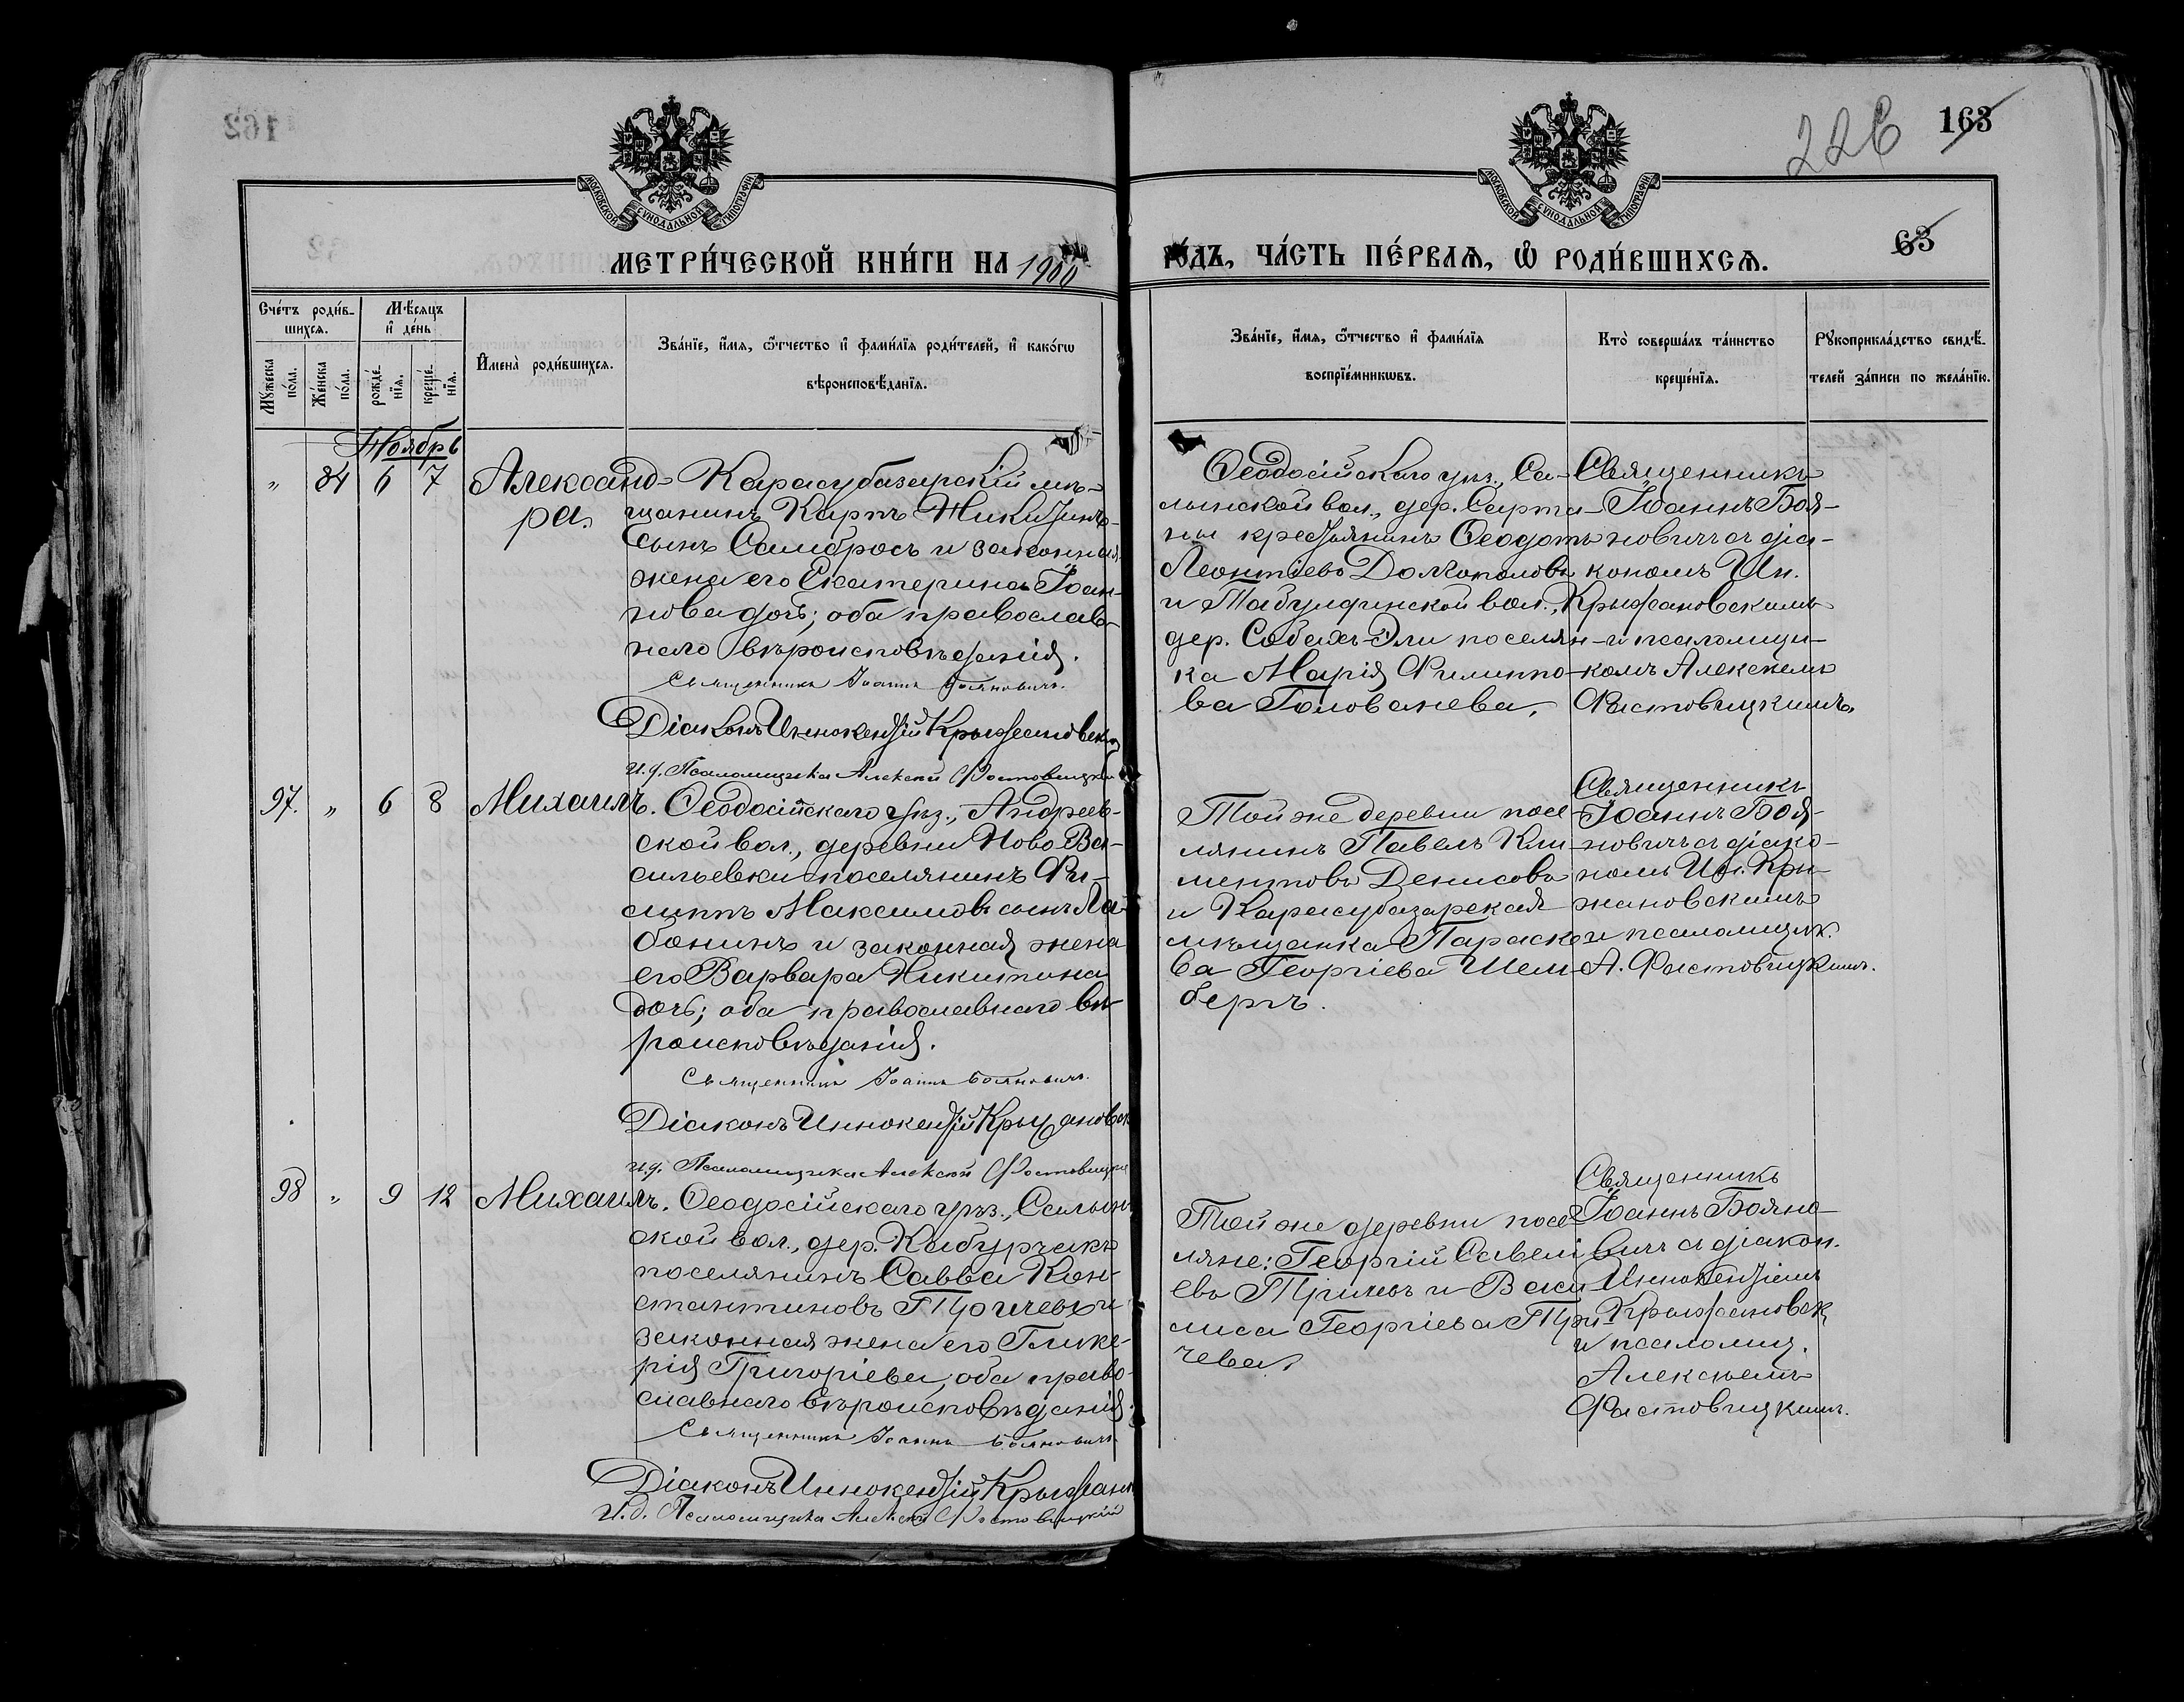 226 163
МОСКОВСКОЙ СѴНОДАЛЬНОЙ ТИПОГРАФІИ
МОСКОВСКОЙ СѴНОДАЛЬНОЙ ТИПОГРАФІИ
63
МЕТРИ́ЧЕСКОЙ КНИ́ГИ НА 1900
ГО́ДЪ, ЧА́СТЬ ПЕ́РВАѦ, Ѽ РОДИ́ВШИХСѦ.
Сче́тъ роди́в-
шихсѧ.
Мѣ́сѧцъ
и҆ де́нь
Мꙋ́жеска
по́ла.
Же́нска
по́ла.
рожде́-
нїѧ.
креще́-
нїѧ.
И҆мена̀ роди́вшихсѧ.
Зва́нїе, и҆́мѧ, ѻ҆́тчество и҆ фами́лїѧ роди́телей, и҆ како́гѡ
вѣроисповѣ́данїѧ.
Зва́нїе, и҆́мѧ, ѻ҆́тчество и҆ фами́лїѧ
воспрїе́мникѡвъ.
Кто̀ соверша́лъ та́инство
креще́нїѧ.
Рꙋкоприкла́дство свидѣ́-
телей за́писи по жела́нїю.
Ноябрь
" 84 6 7 Александ-
ра.
Карасубазарскій мѣ-
щанинъ Карпъ Никитинъ
сынъ Самбросъ и законная
жена его Екатерина Іоан-
нова дочь; оба православ-
наго вѣроисповѣданія.
Священникъ Іоаннъ Бояновичъ.
Діаконъ Иннокентій Крыжановск
и.д. Псаломщика Алексѣй Фастовицкій
Ѳеодосійскаго уѣз., Са-
лынской вол., дер. Сарта-
ны крестьянинъ Ѳеодотъ
Леонтіевъ Долкополовъ
и Табулдинской вол.,
дер. Собахъ-Эли поселян-
ка Марія Филиппо-
ва Голованева.
Священникъ
Іоаннъ Боя-
новичъ съ діа-
кономъ Ин.
Крыжановскимъ
и псаломщи-
комъ Алексѣемъ
Фастовицкимъ.
97. " 6 8 Михаилъ.
Ѳеодосійскаго уѣз., Андреев-
ской вол., деревни Ново Ва-
сильевки поселянинъ Фи-
липпъ Максимовъ сынъ Ла-
бонинъ и законная жена
его Варвара Никитина
дочь; оба православнаго вѣ-
роисповѣданія.
Священникъ Іоаннъ Бояновичъ.
Діаконъ Иннокентій Крыжановск
и.д. Псаломщика Алексѣй Фастовицкій
Той же деревни посе-
лянинъ Павелъ Кли-
ментовъ Денисовъ
и Карасубазарская
мѣщанка Параске-
ва Георгіева Шем-
бергъ.
Священникъ
Іоаннъ Боя-
новичъ съ діако-
номъ Ин. Кры-
жановскимъ
и псаломщик.
А. Фастовицкимъ.
98 " 9 12 Михаилъ.
Ѳеодосійскаго уѣз., Салын-
ской вол., дер. Кабурчакъ
поселянинъ Савва Кон-
стантиновъ Тричевъ и
законная жена его Глике-
рія Григоріева; оба право-
славнаго вѣроисповѣданія.
Священникъ Іоаннъ Бояновичъ.
Діаконъ Иннокентій Крыжан
И.д. Псаломщика Алексѣй Фастовицкій
Той же деревни посе-
ляне: Георгій Савелі-
евъ Тричевъ и Васи-
лиса Георгіева Три-
чева.
Священникъ
Іоаннъ Бояно-
вичъ съ діакон.
Иннокентіемъ
Крыжановск.
и псаломщ.
Алексѣемъ
Фастовицкимъ.